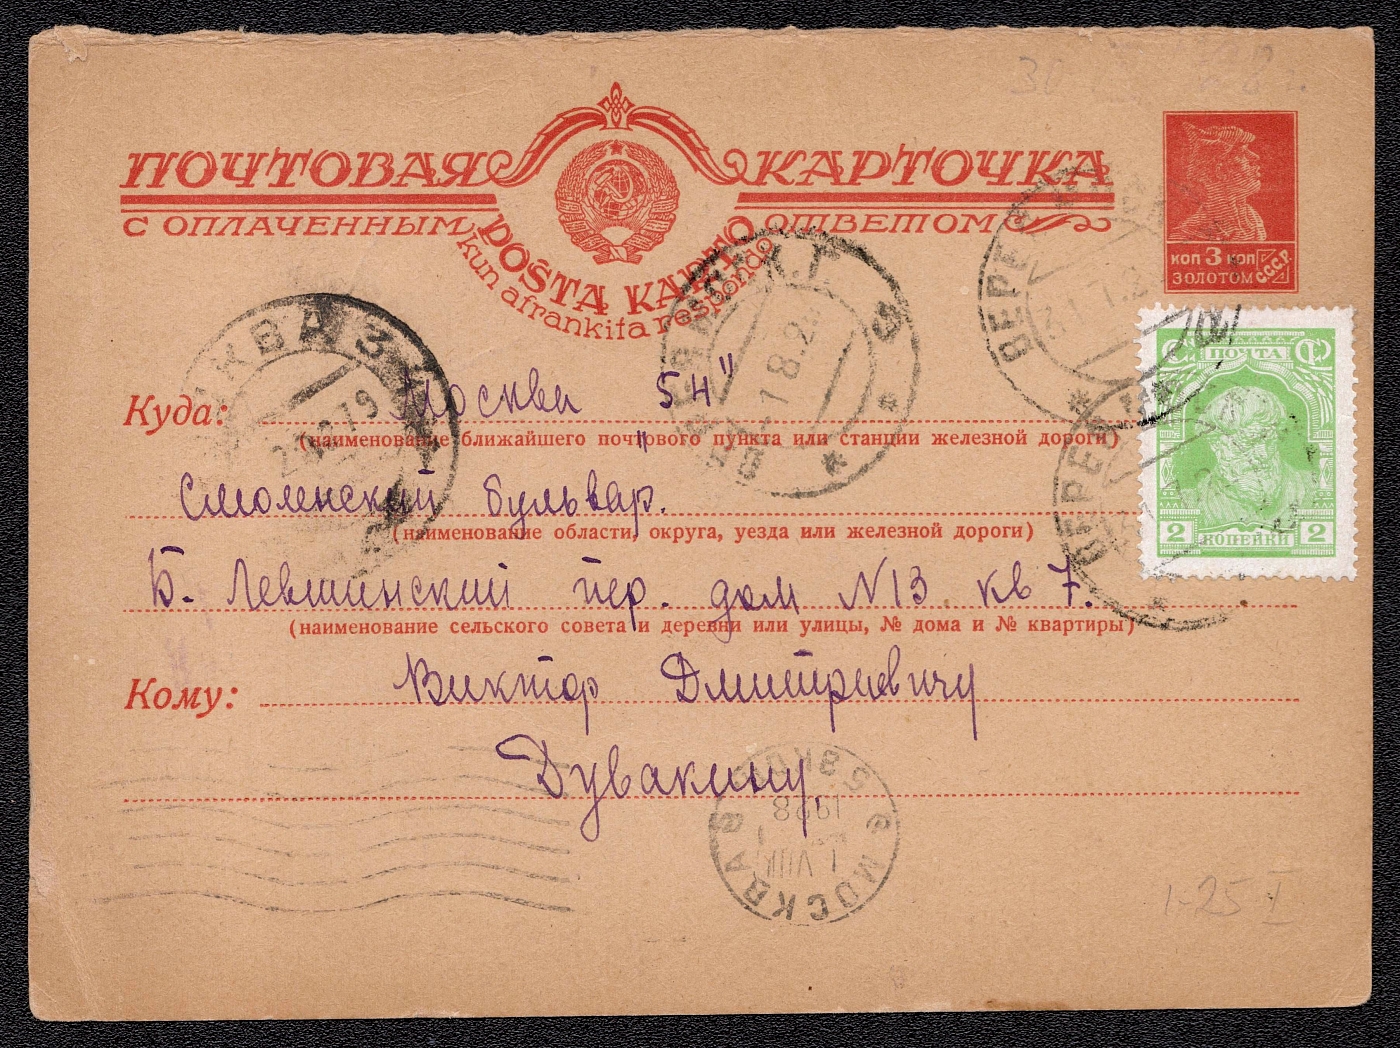 ПОЧТОВАЯ КАРТОЧКА
С ОПЛАЧЕННЫМ ОТВЕТОМ
POŜTA KARTO
kun afrankita respondo
КОП 3 КОП
ЗОЛОТОМ СССР
ПОЧТА
2 КОПЕЙКИ 2
МОСКВА
Куда: Москва 54
(наименование ближайшего почтового пункта или станции железной дороги)
"Смоленский бульвар".
(наименование области, округа, уезда или железной дороги)
Б. Левшинский пер. дом N13 кв 7.
(наименование сельского совета и деревни или улицы, № дома и № квартиры)
Кому: Виктор Дмитриевичу
Дувакину
МОСКВА
1928
1-25 I